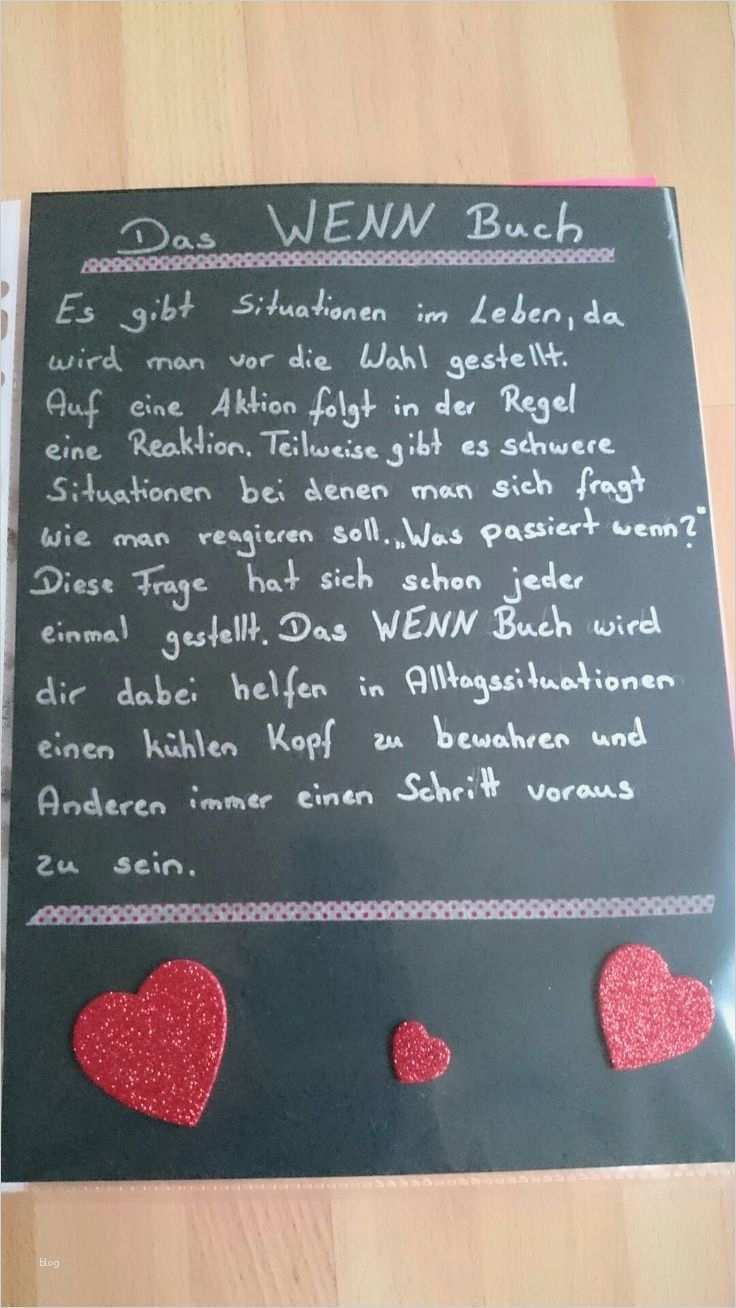 Das WENN Buch
Es gibt Situationen im Leben, da
wird man vor die Wahl gestellt.
Auf eine Aktion folgt in der Regel
eine Reaktion. Teilweise gibt es schwere
Situationen bei denen man sich fragt
wie man reagieren soll. „Was passiert wenn?"
Diese Frage hat sich schon jeder
einmal gestellt. Das WENN Buch wird
dir dabei helfen in Alltagssituationen
einen kühlen Kopf zu bewahren und
Anderen immer einen Schritt voraus
zu sein.
blog